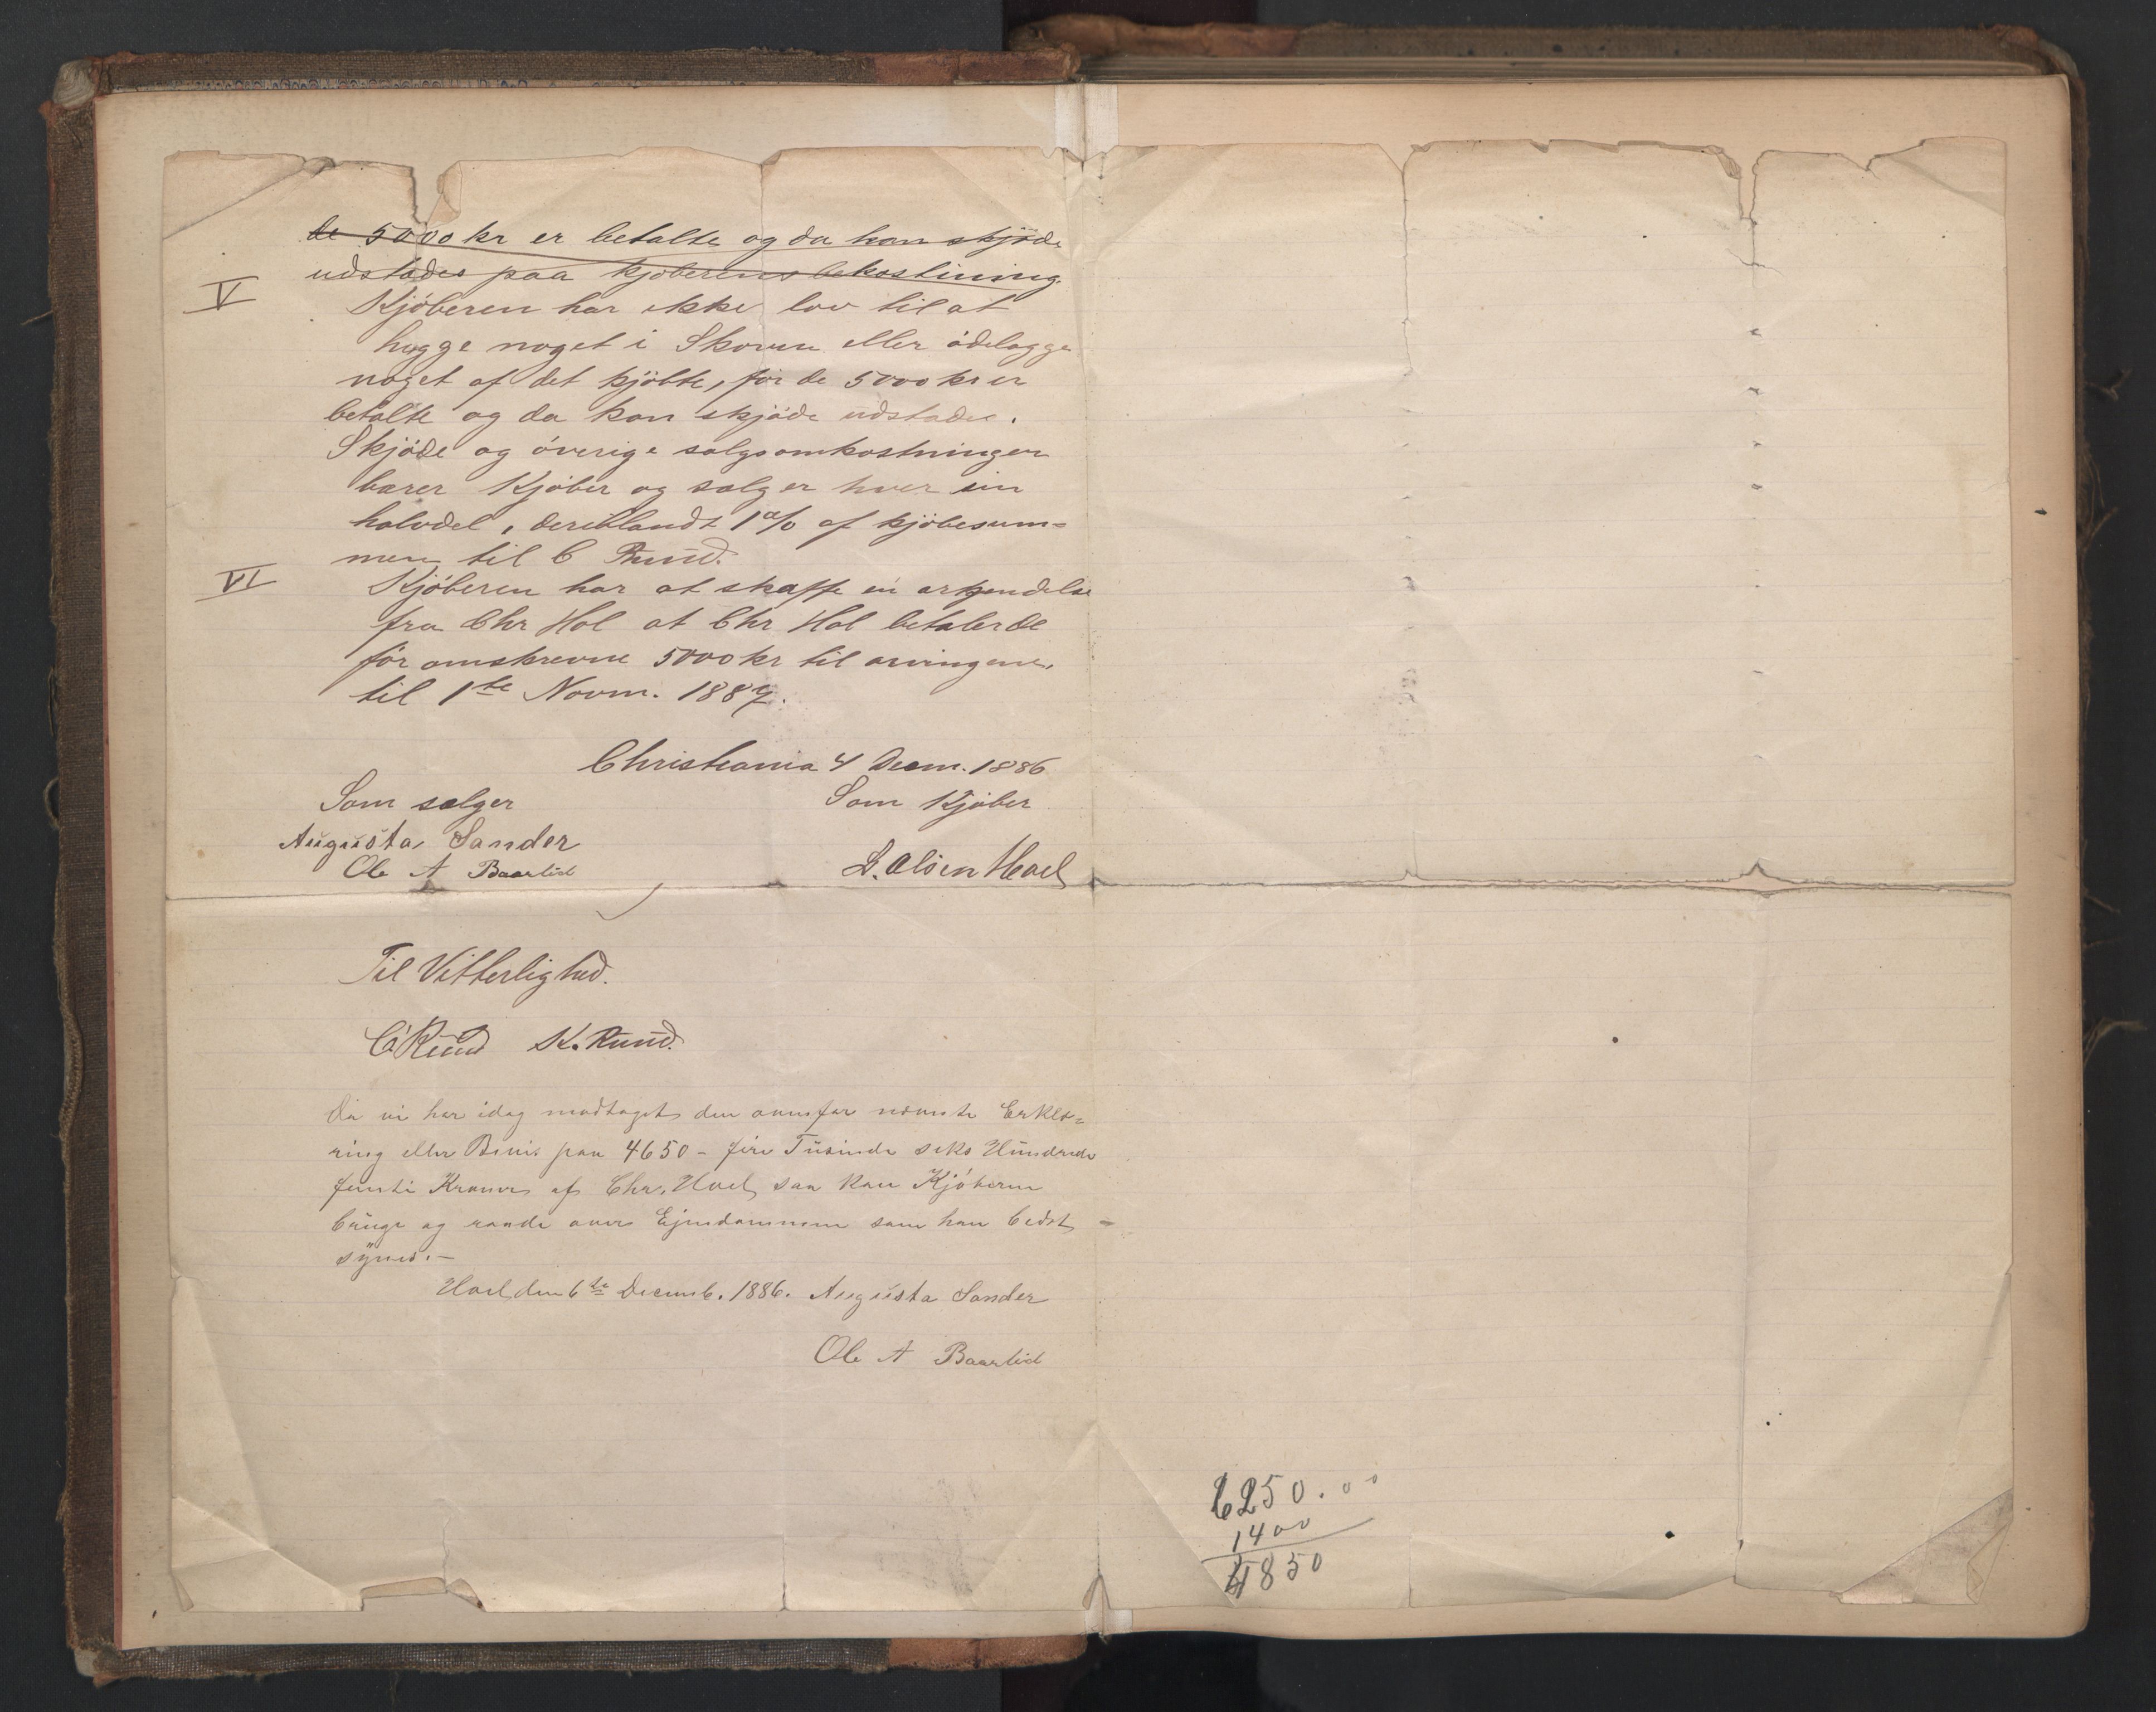 de 5000 kr er betalte og da kan skjöde
udstædes paa kjöberens bekostning.
V
Kjöberen har ikke lov til at
hugge noget i Skoven eller ödelægge
noget af det kjöbte, för de 5000 kr er
betalte og da kan skjöde udstædes.
Skjöde og överige salgsomkostninger
bærer Kjöber og sælger hver sin
halvdel, deriblandt 1 % af kjöbesum=
men til C Ruud.
VI
Kjöberen har at skaffe en erkjendelse
fra Chr Hol at Chr Hol betaler de
för omskrevne 5000 kr til arvingerne,
til 1ste Novm. 1887.
Christiania 4 Decm. 1886
Som sælger
Som Kjöber
Augusta Sander
Ole A Baarlid
L. Olsen Hoel
Til Vitterlighed.
C Ruud K. Ruud.
Da vi har idag modtaget den ovenfor nævnte Erklæ=
ring eller Bevis paa 4650 - fire Tusinde seks Hundrede
femti Kroner af Chr. Hoel, saa kan Kjöberen
bruge og raade over Ejendommen som han bedst
synes. -
Hoel den 6te Decemb. 1886. Augusta Sander
Ole A Baarlid
6250.00
1400
4850